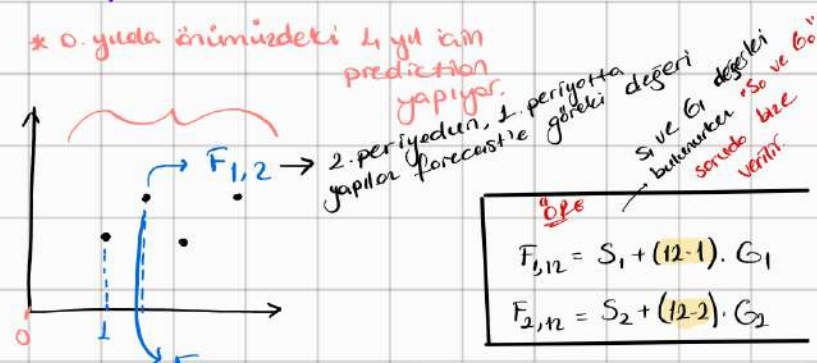 * 0. yılda önümüzdeki 4 yıl için
prediction
yapıyor.
F1,2 → 2. periyodun, 1. periyotta
yapılan forecast'e göreki değeri
S1 ve G1 değerleri
bulunurken "S0 ve G0"
soruda bize
verilir.
"ÖRG
F1,12 = S1 + (12-1) . G1
F2,12 = S2 + (12-2) . G2
0
1